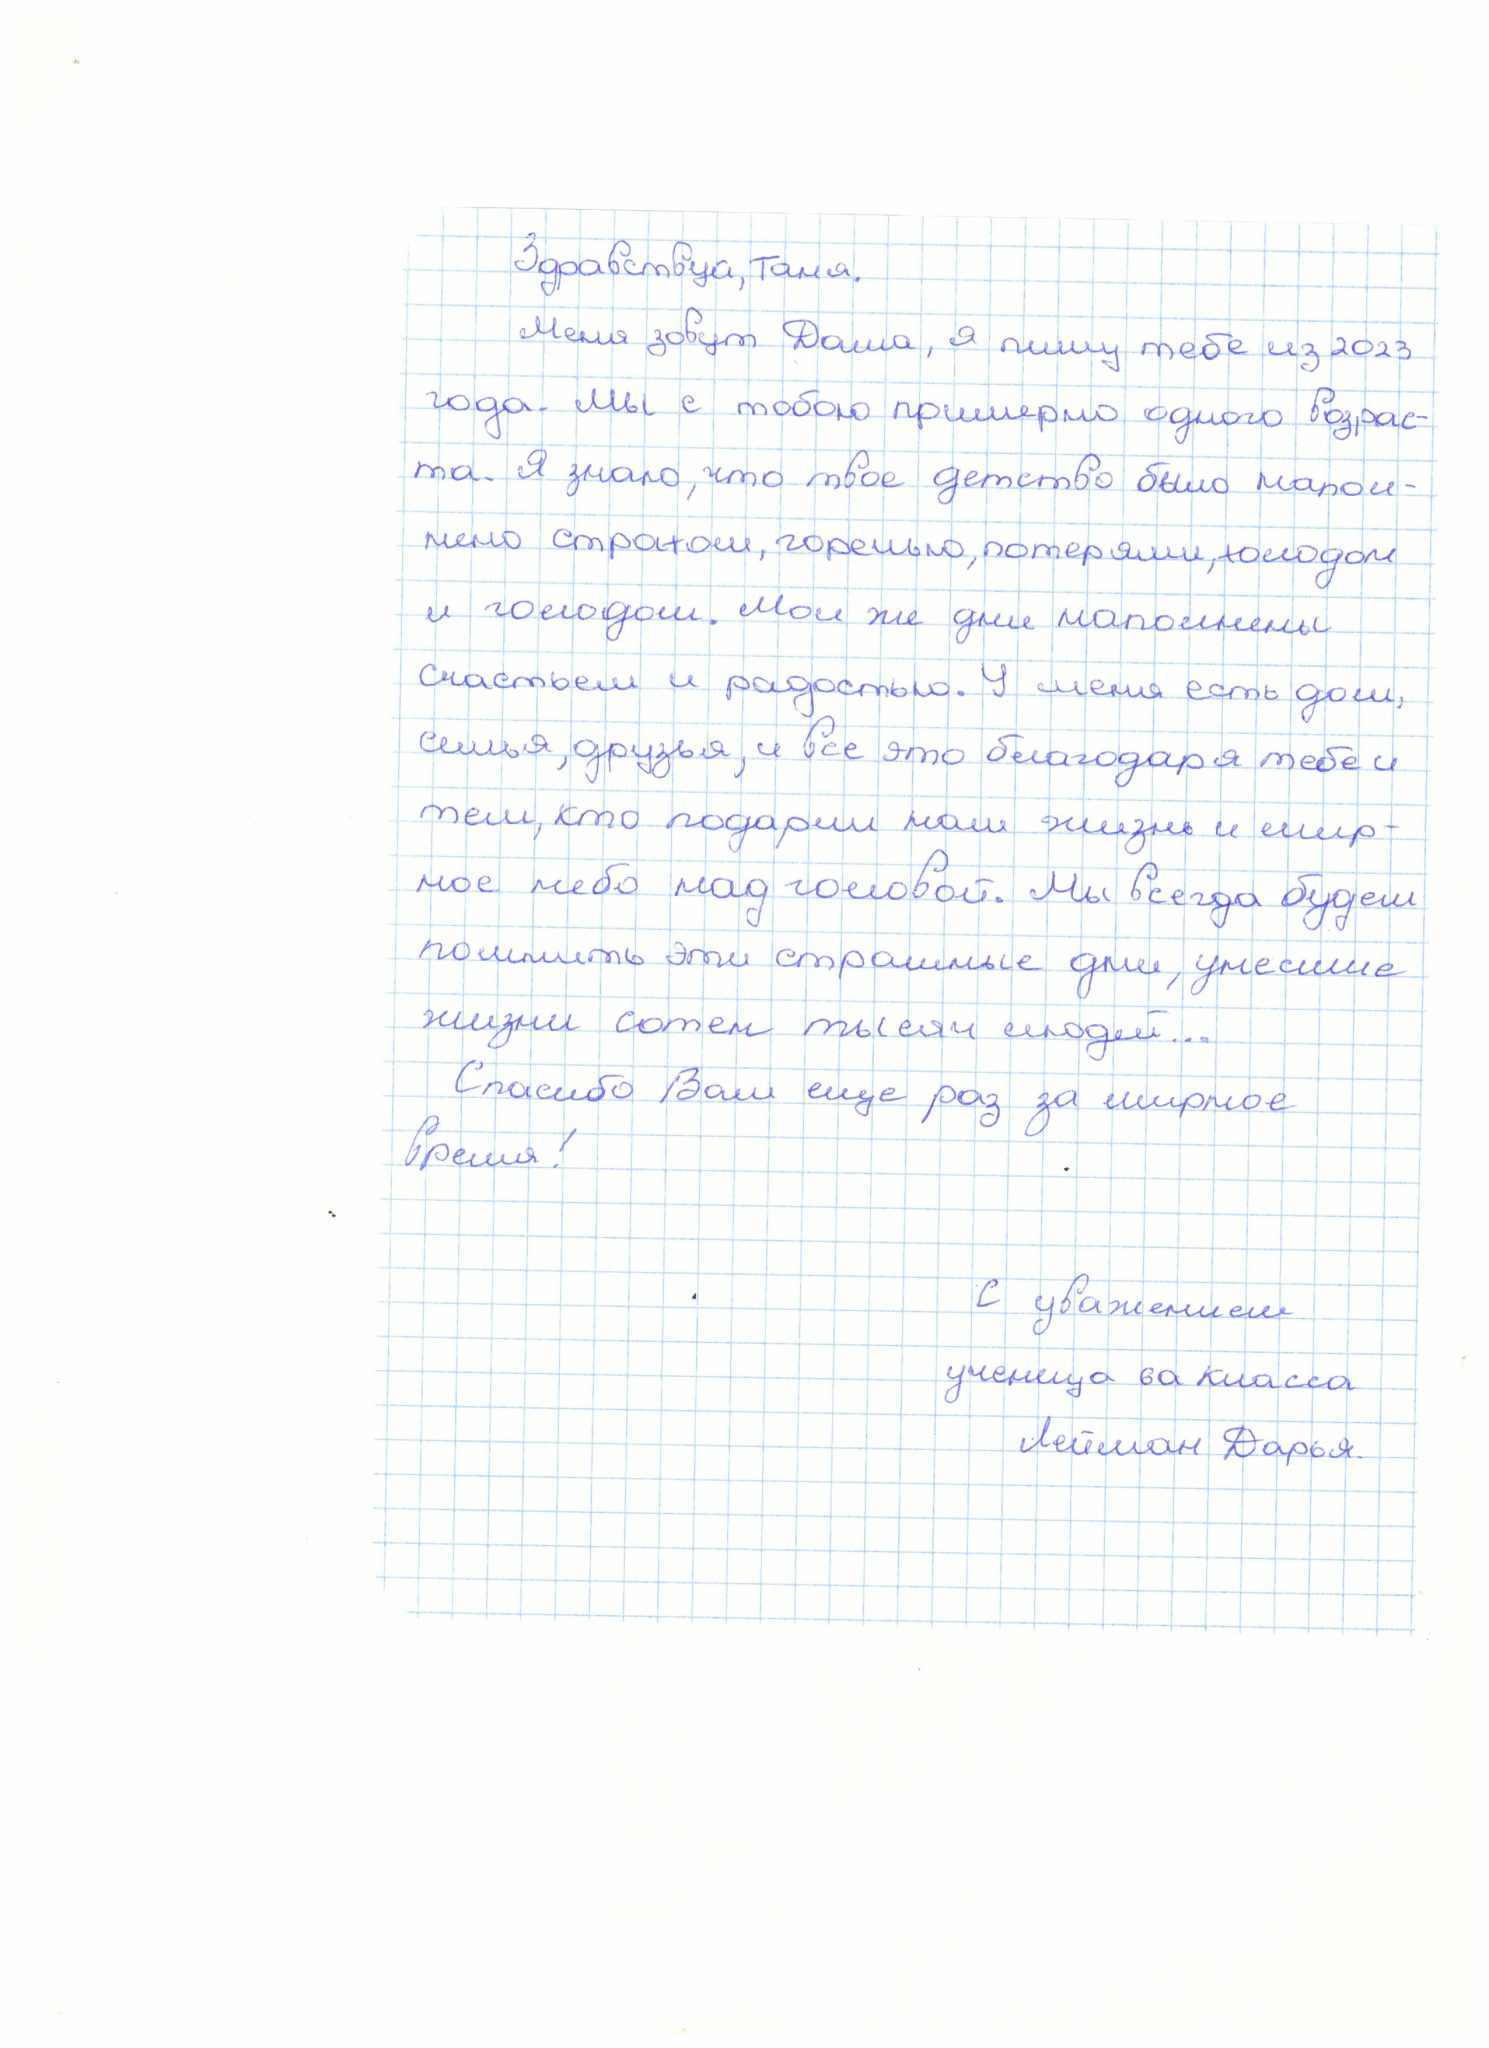 Здравствуй, Таня.
Меня зовут Даша, я пишу тебе из 2023
года. Мы с тобою примерно одного возрас-
та. Я знаю, что твое детство было напол-
нено страхом, горечью, потерями, холодом
и голодом. Мои же дни наполнены
счастьем и радостью. У меня есть дом,
семья, друзья, и все это благодаря тебе и
тем, кто подарил нам жизнь и мир-
ное небо над головой. Мы всегда будем
помнить эти страшные дни, унесшие
жизни сотен тысяч людей...
Спасибо Вам еще раз за мирное
время!
С уважением
ученица 6а класса
Лейман Дарья.